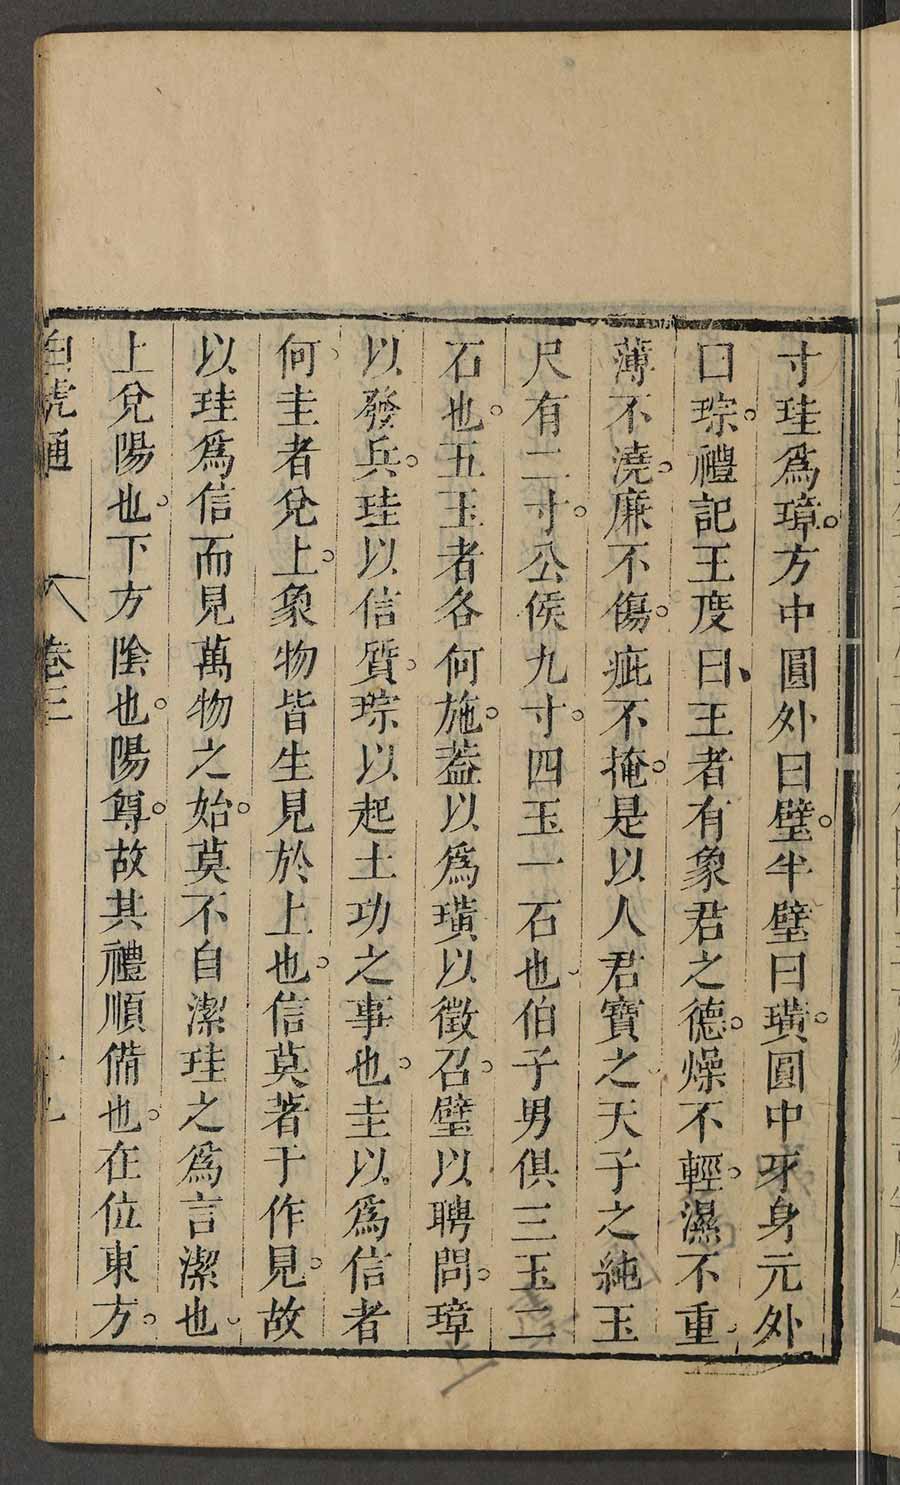 寸珪爲璋。方中圓外曰璧。半璧曰璜。圓中牙身元外
曰琮。禮記王度曰、王者有象君之德。燥不輕。濕不重
薄不澆。廉不傷。疵不掩。是以人君寶之天子之純玉
尺有二寸。公侯九寸。四玉一石也伯子男俱三玉二
石也。五玉者各何施。蓋以爲璜以徵召。璧以聘問。璋
以發兵。珪以信質。琮以起土功之事也。圭以爲信者
何圭者兌上。象物皆生見於上也。信莫著于作見。故
以珪爲信而見萬物之始。莫不自潔珪之爲言潔也
上兌陽也。下方陰也。陽尊。故其禮順備也。在位東方。
白虎通 卷三 十九